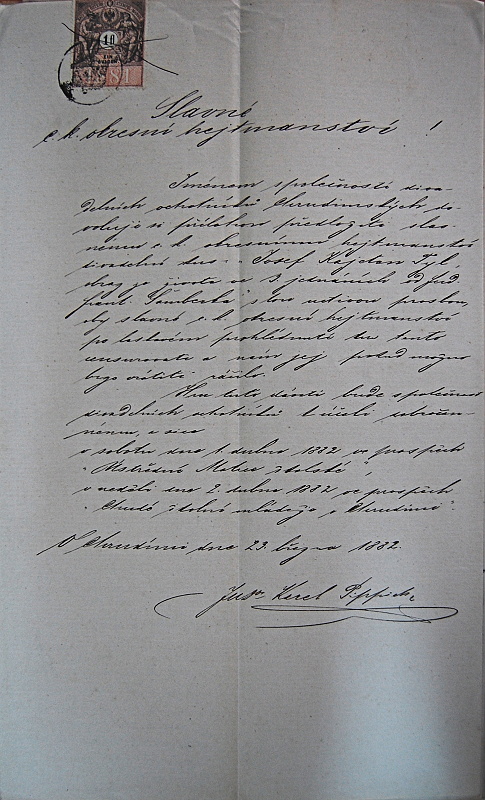 10
81
Slavné
c. k. okresní hejtmanství!
Jménem společnosti diva-
delních ochotníků Chrudimských do-
voluji si přílohou předložiti slav-
nému c. k. okresnímu hejtmanství
divadelní kus "Josef Kajetan Tyl"
obraz ze života ve 3 jednáních od Ferd.
Šamberka" s tou uctivou prosbou,
by slavné c. k. okresní hejtmanství
po laskavém prohlédnutí kus tento
censurovati a nám jej pokud možno
brzo vrátiti ráčilo.
Hru tuto dávati bude společnost
divadelních ochotníků k účeli dobročin-
nému, a sice
v sobotu dne 1. dubna 1882 ve prospěch
"Ústřední Matice školské",
v neděli dne 2. dubna 1882 ve prospěch
"Chudé školní mládeže v Chrudimi".
V Chrudimi dne 23. března 1882.
JUDr. Karel Pippich